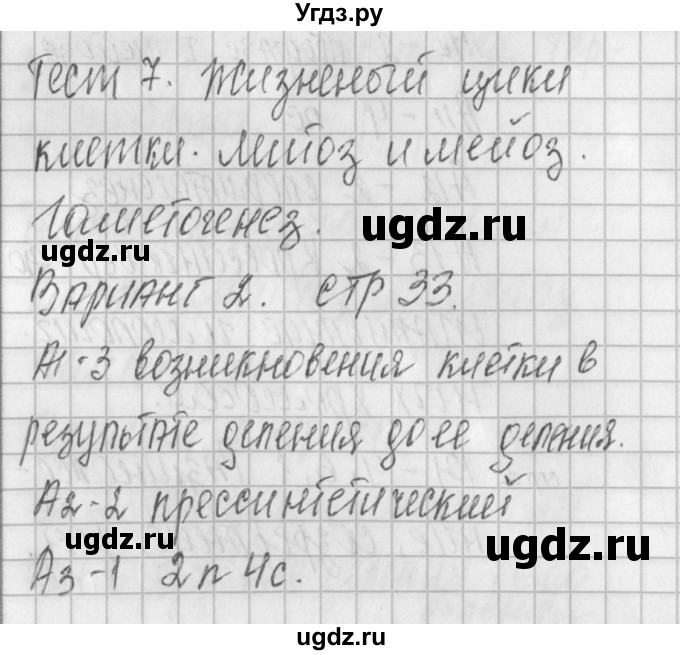 Угдз.ру
Тест 7. Жизненый цикл
клетки. Митоз и мейоз.
Гаметогенез.
ugdz.ru
ugdz.ru
Вариант 2. стр 33.
А1-3 возникновения клетки в
результате деления до ее деления.
А2-2 прессинтетический
ugdz.ru
ugdz.ru
А3-1 2n 4c.
ugdz.ru